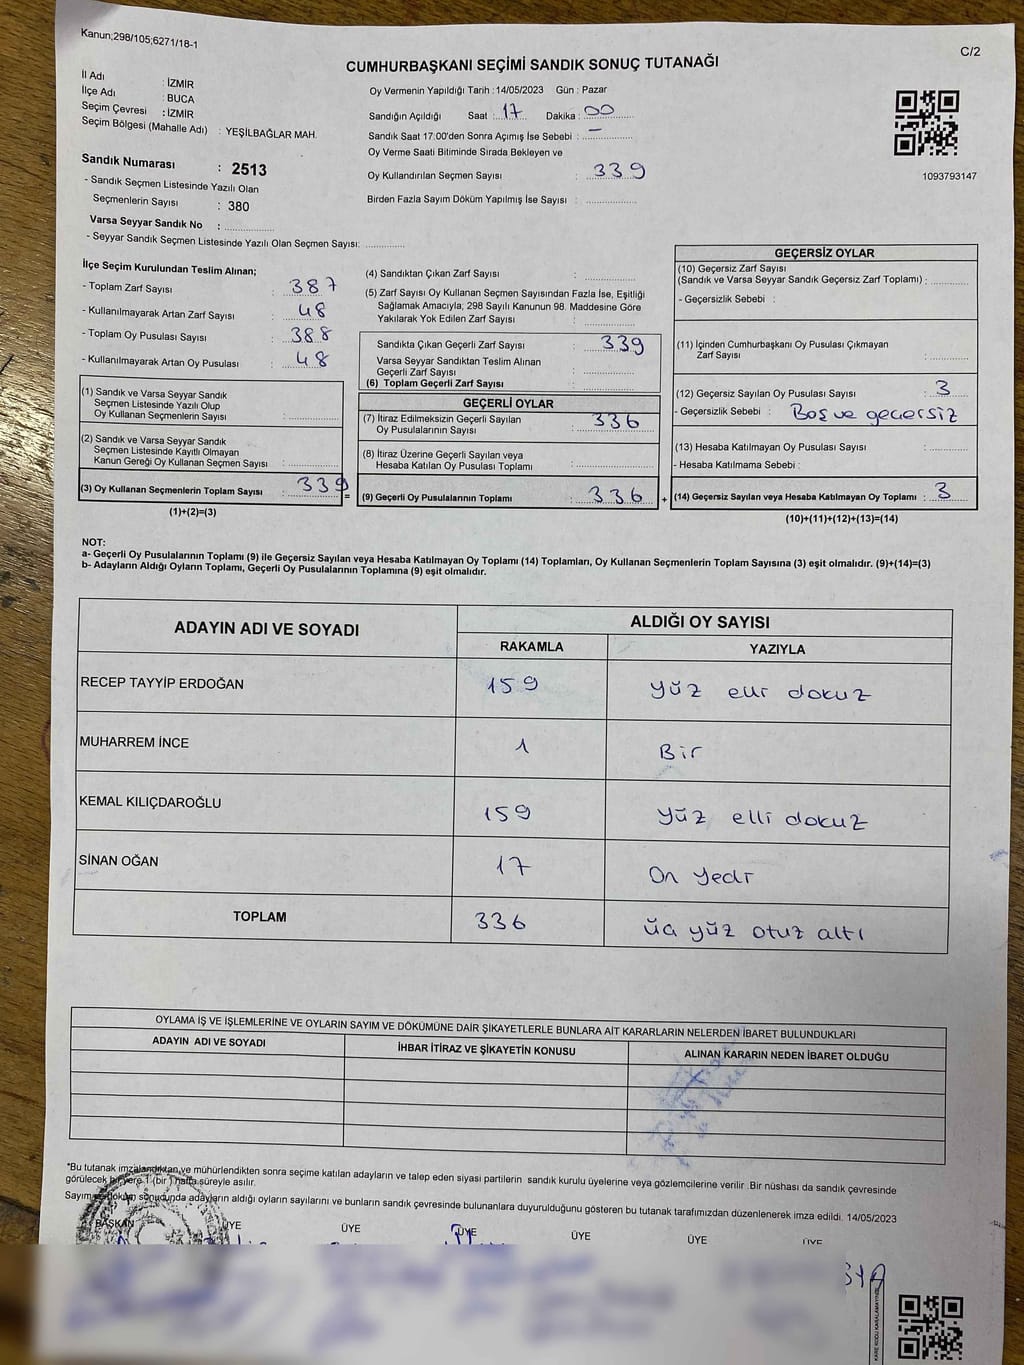 Kanun;298/105;6271/18-1
C/2
CUMHURBAŞKANI SEÇİMİ SANDIK SONUÇ TUTANAĞI
İl Adı : İZMİR
İlçe Adı : BUCA
Seçim Çevresi : İZMİR
Seçim Bölgesi (Mahalle Adı) : YEŞİLBAĞLAR MAH.
Sandık Numarası : 2513
- Sandık Seçmen Listesinde Yazılı Olan
Seçmenlerin Sayısı : 380
Varsa Seyyar Sandık No :
- Seyyar Sandık Seçmen Listesinde Yazılı Olan Seçmen Sayısı:
Oy Vermenin Yapıldığı Tarih :14/05/2023 Gün : Pazar
Sandığın Açıldığı Saat : 17 Dakika : 00
Sandık Saat 17:00'den Sonra Açımış İse Sebebi : –
Oy Verme Saati Bitiminde Sırada Bekleyen ve
Oy Kullandırılan Seçmen Sayısı : 339
Birden Fazla Sayım Döküm Yapılmış İse Sayısı :
1093793147
İlçe Seçim Kurulundan Teslim Alınan;
- Toplam Zarf Sayısı : 387
- Kullanılmayarak Artan Zarf Sayısı : 48
- Toplam Oy Pusulası Sayısı : 388
- Kullanılmayarak Artan Oy Pusulası : 48
(1) Sandık ve Varsa Seyyar Sandık
Seçmen Listesinde Yazılı Olup
Oy Kullanan Seçmenlerin Sayısı :
(2) Sandık ve Varsa Seyyar Sandık
Seçmen Listesinde Kayıtlı Olmayan
Kanun Gereği Oy Kullanan Seçmen Sayısı :
(3) Oy Kullanan Seçmenlerin Toplam Sayısı : 339 =
(1)+(2)=(3)
(4) Sandıktan Çıkan Zarf Sayısı :
(5) Zarf Sayısı Oy Kullanan Seçmen Sayısından Fazla İse, Eşitliği
Sağlamak Amacıyla; 298 Sayılı Kanunun 98. Maddesine Göre
Yakılarak Yok Edilen Zarf Sayısı :
Sandıkta Çıkan Geçerli Zarf Sayısı : 339
Varsa Seyyar Sandıktan Teslim Alınan
Geçerli Zarf Sayısı :
(6) Toplam Geçerli Zarf Sayısı :
GEÇERLİ OYLAR
(7) İtiraz Edilmeksizin Geçerli Sayılan
Oy Pusulalarının Sayısı : 336
(8) İtiraz Üzerine Geçerli Sayılan veya
Hesaba Katılan Oy Pusulası Toplamı :
(9) Geçerli Oy Pusulalarının Toplamı : 336 +
GEÇERSİZ OYLAR
(10) Geçersiz Zarf Sayısı
(Sandık ve Varsa Seyyar Sandık Geçersiz Zarf Toplamı) :
- Geçersizlik Sebebi :
(11) İçinden Cumhurbaşkanı Oy Pusulası Çıkmayan
Zarf Sayısı :
(12) Geçersiz Sayılan Oy Pusulası Sayısı : 3
- Geçersizlik Sebebi : Boş ve geçersiz
(13) Hesaba Katılmayan Oy Pusulası Sayısı :
- Hesaba Katılmama Sebebi :
(14) Geçersiz Sayılan veya Hesaba Katılmayan Oy Toplamı : 3
(10)+(11)+(12)+(13)=(14)
NOT:
a- Geçerli Oy Pusulalarının Toplamı (9) ile Geçersiz Sayılan veya Hesaba Katılmayan Oy Toplamı (14) Toplamları, Oy Kullanan Seçmenlerin Toplam Sayısına (3) eşit olmalıdır. (9)+(14)=(3)
b- Adayların Aldığı Oyların Toplamı, Geçerli Oy Pusulalarının Toplamına (9) eşit olmalıdır.
ADAYIN ADI VE SOYADI ALDIĞI OY SAYISI
RAKAMLA YAZIYLA
RECEP TAYYİP ERDOĞAN 159 yüz elli dokuz
MUHARREM İNCE 1 Bir
KEMAL KILIÇDAROĞLU 159 yüz elli dokuz
SİNAN OĞAN 17 On yedi
TOPLAM 336 üç yüz otuz altı
OYLAMA İŞ VE İŞLEMLERİNE VE OYLARIN SAYIM VE DÖKÜMÜNE DAİR ŞİKAYETLERLE BUNLARA AİT KARARLARIN NELERDEN İBARET BULUNDUKLARI
ADAYIN ADI VE SOYADI İHBAR İTİRAZ VE ŞİKAYETİN KONUSU ALINAN KARARIN NEDEN İBARET OLDUĞU
*Bu tutanak imzalandıktan ve mühürlendikten sonra seçime katılan adayların ve talep eden siyasi partilerin sandık kurulu üyelerine veya gözlemcilerine verilir .Bir nüshası da sandık çevresinde
görülecek bir yere 1 (bir ) hafta süreyle asılır.
Sayım ve döküm sonucunda adayların aldığı oyların sayılarını ve bunların sandık çevresinde bulunanlara duyurulduğunu gösteren bu tutanak tarafımızdan düzenlenerek imza edildi. 14/05/2023
BAŞKAN ÜYE ÜYE ÜYE ÜYE ÜYE ÜYE